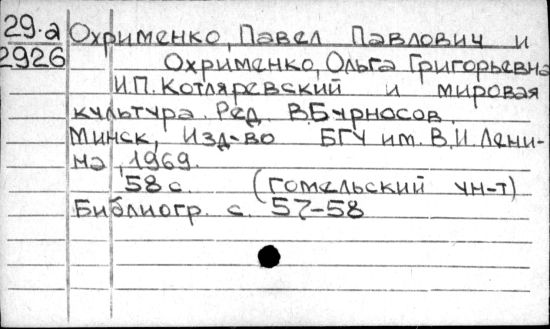 29.а Охрименко, Павел Павлович и
2926 Охрименко, Ольга Григорьевна
И.П. Котляревский и мировая
культура. Ред. В.Бурносов.
Минск, Изд-во БГУ им. В.И.Лени-
на, 1969.
58 с. (Гомельский ун-т)
Библиогр. с. 57-58